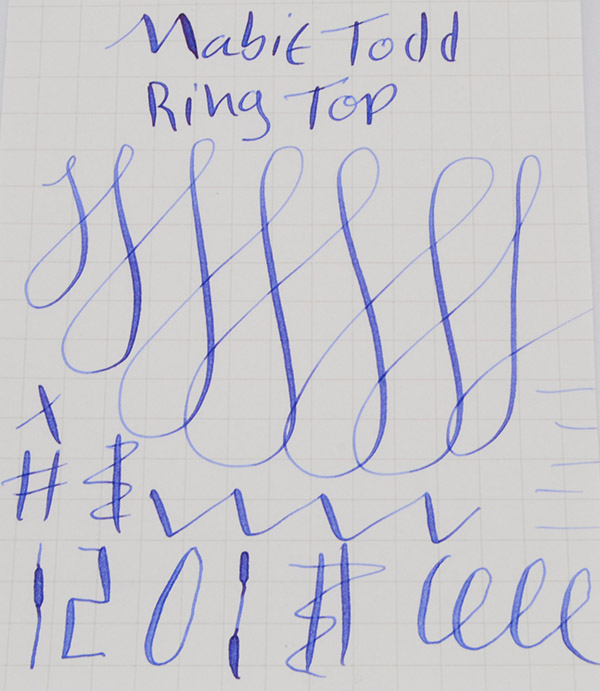 Mabie Todd
Ring Top
x
# $
1 2 0 1 $ eeee